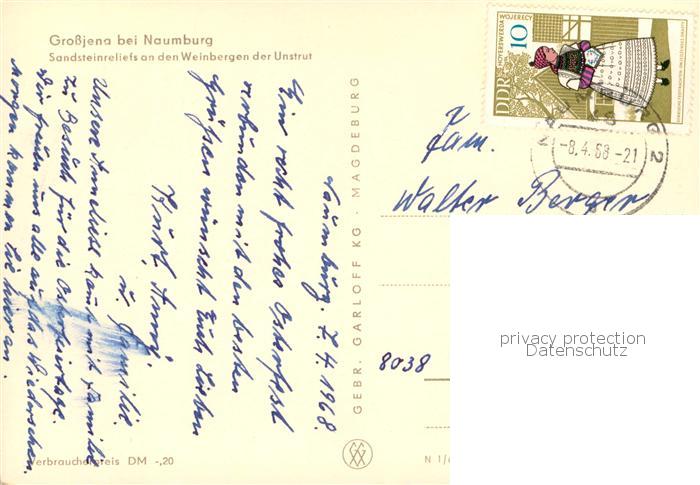 Großjena bei Naumburg
Sandsteinreliefs an den Weinbergen der Unstrut
Naumburg. 7.4.1968.
Ein recht frohes Osterfest
verbunden mit den besten
Grüßen wünscht Euch Lieben
Kurt, Anni,
u. Familie
Unsere Anneliese kommt mit Familie
zu Besuch für die Osterfeiertage.
Wir freuen uns alle auf das Wiedersehen.
Morgen kommen Sie hier an.
Verbraucherpreis DM -,20
GEBR. GARLOFF KG · MAGDEBURG
N 1/6
DDR
10
HOYERSWERDA WOJERECY
NAUMBURG
2
-8.4.68-21
Fam.
Walter Berger
8038
privacy protection
Datenschutz